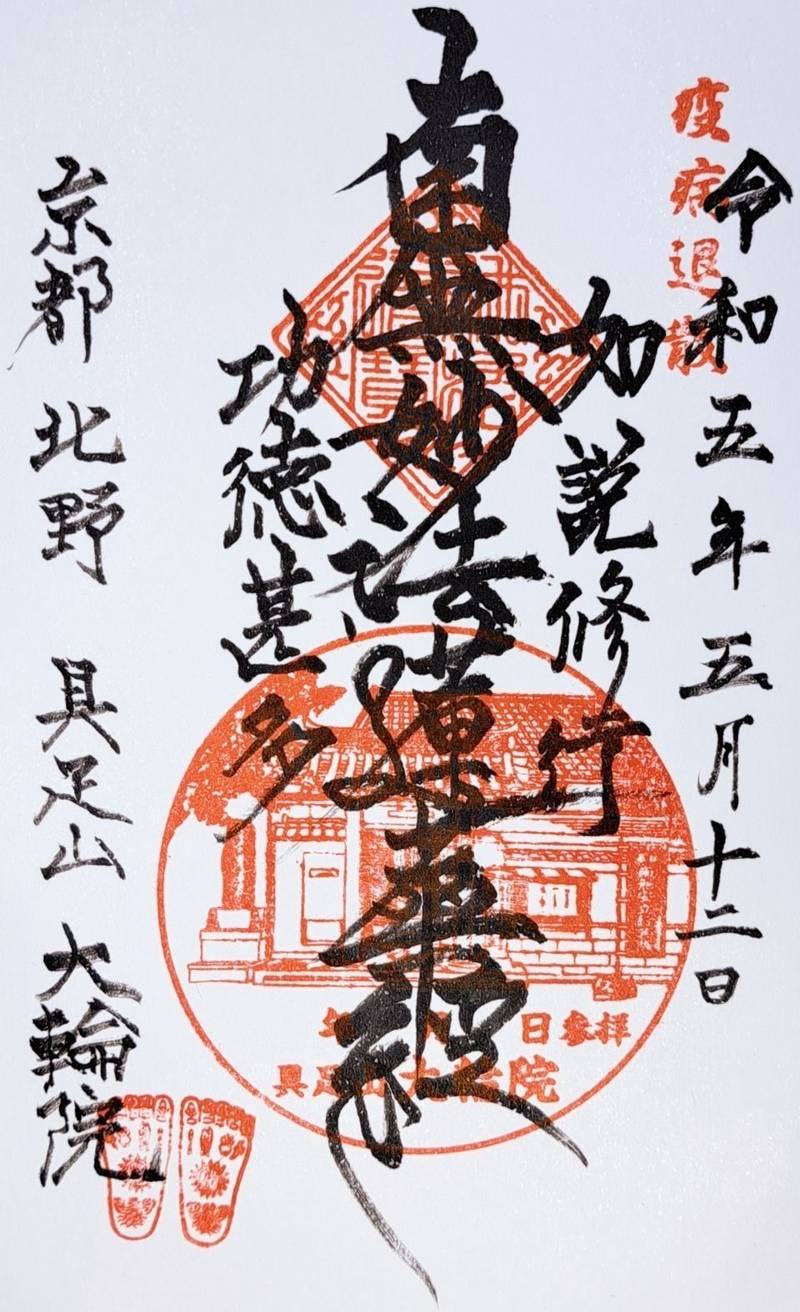 疫病退散
令和五年五月十二日
如説修行
南無妙法蓮華経
功徳甚多
京都 北野 具足山 大輪院
日参拝
具足山大輪院